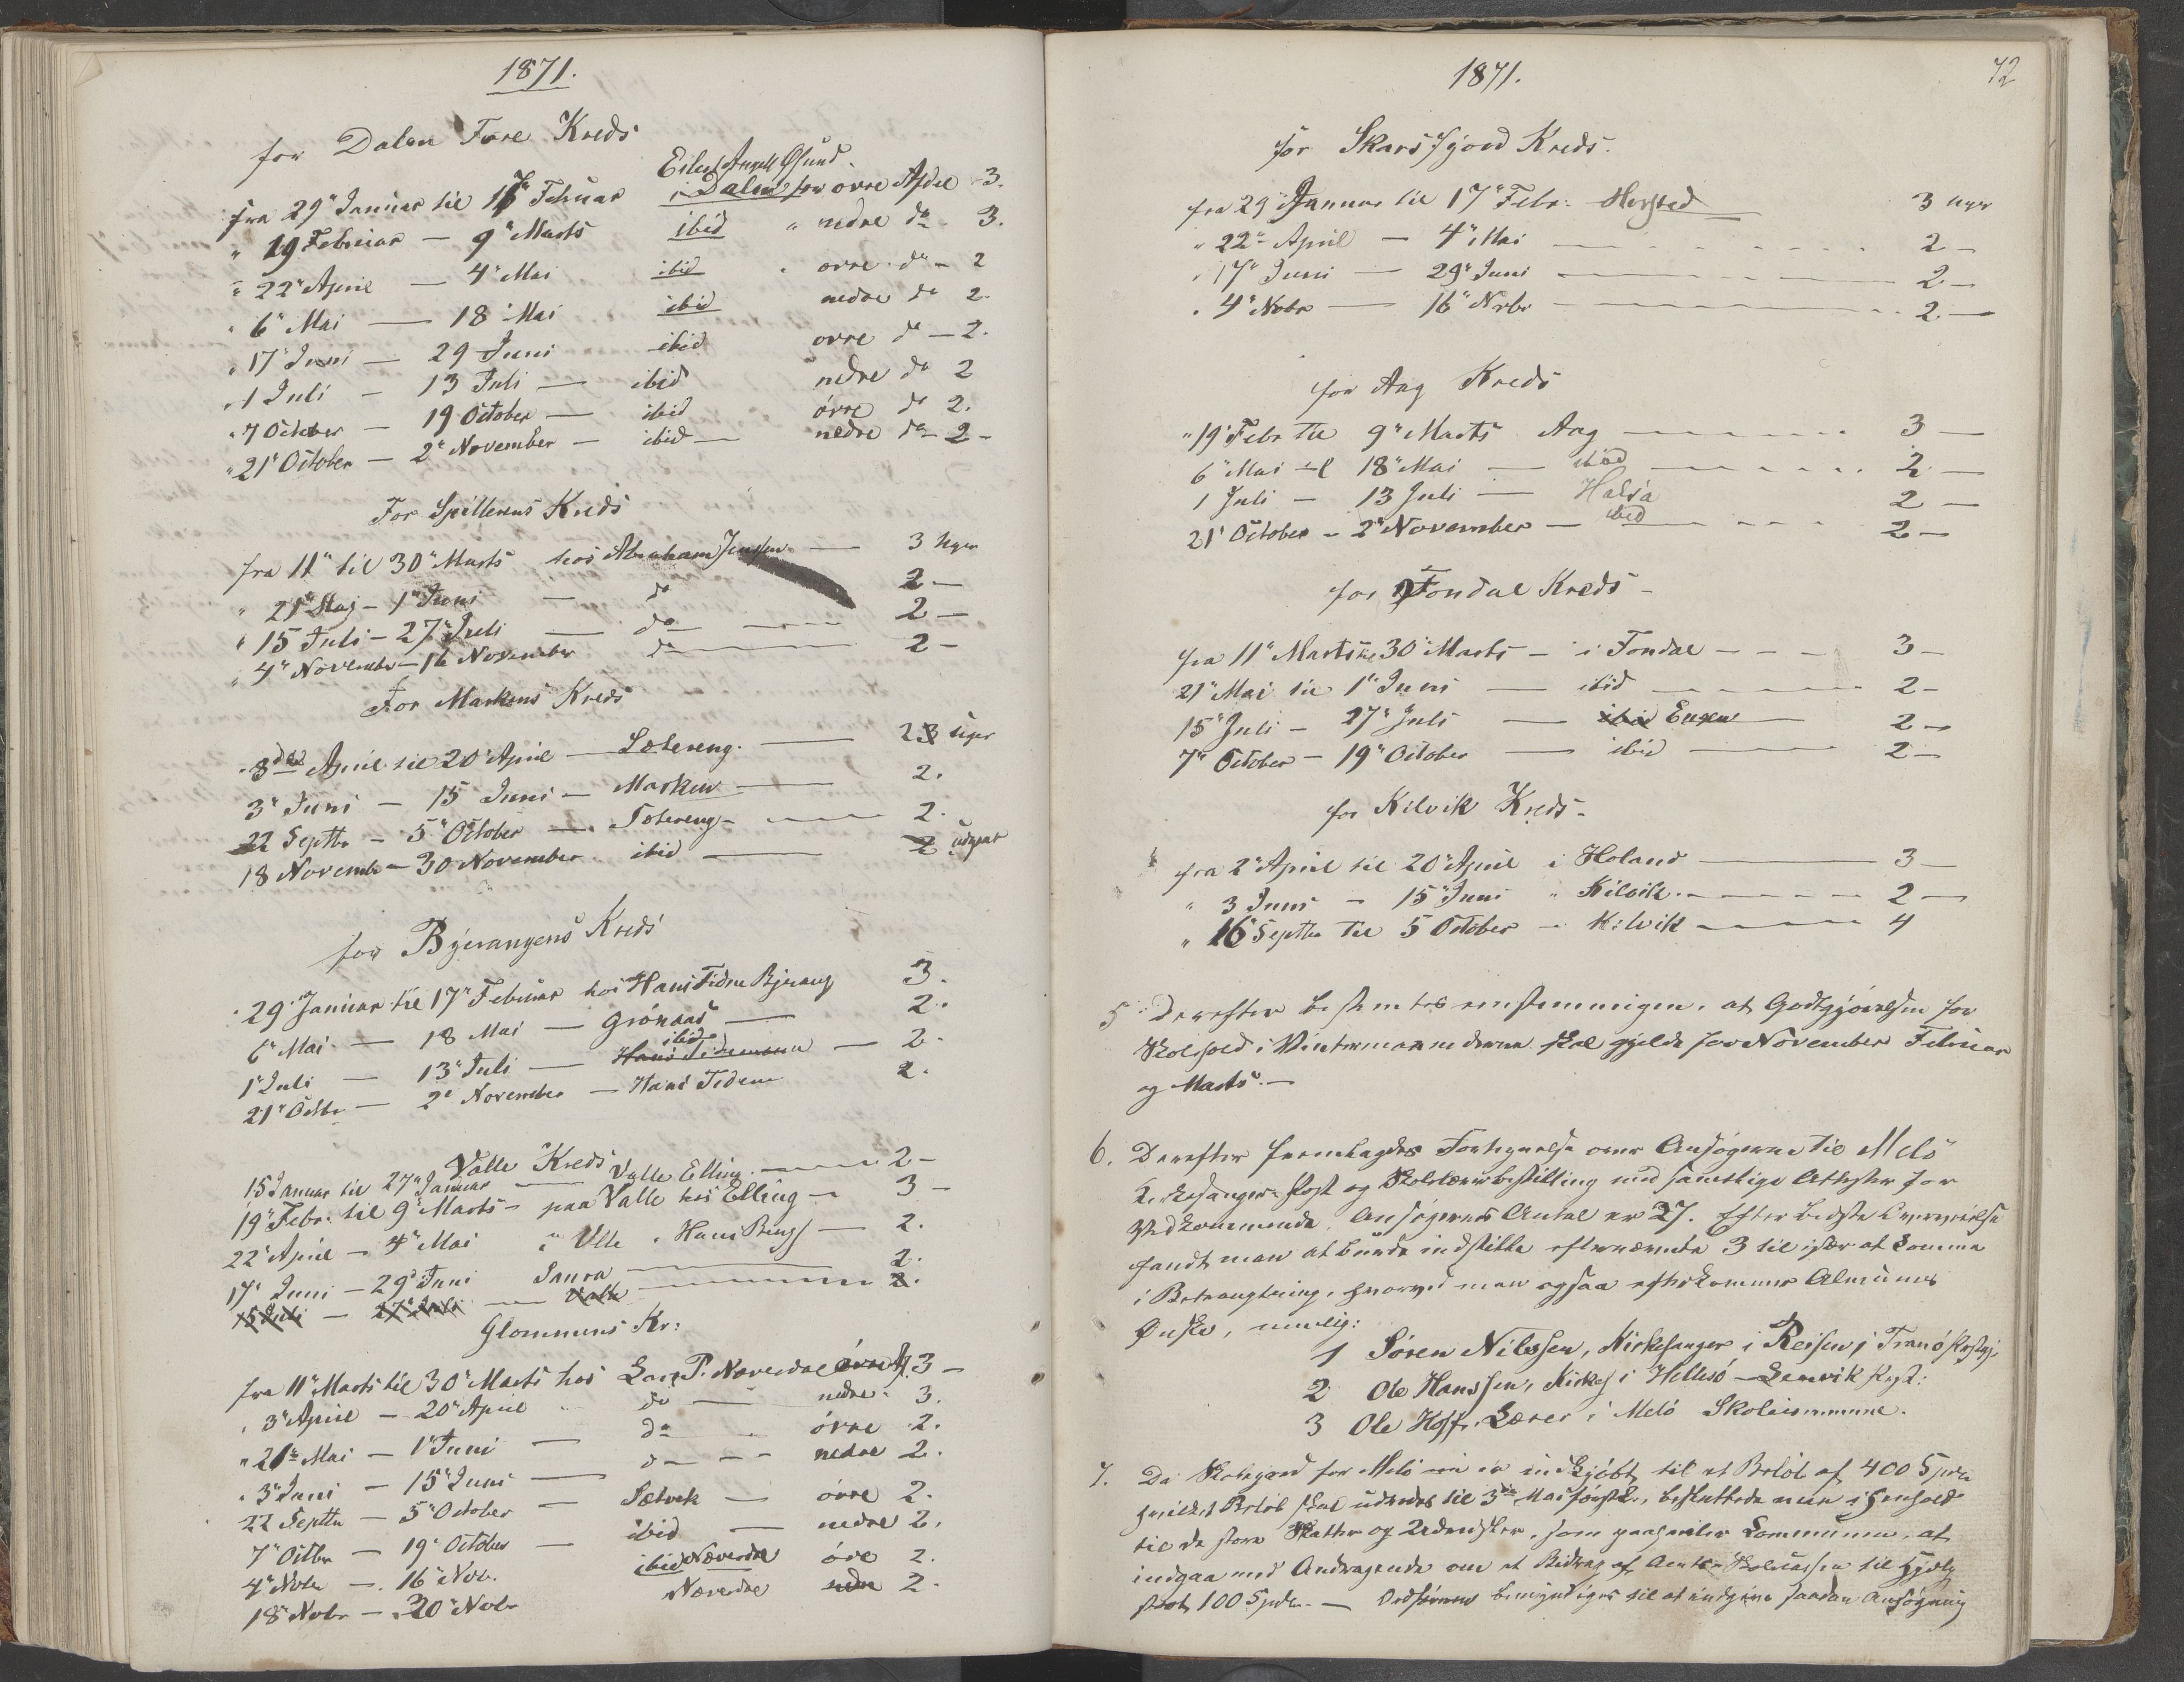 1871.
for Dalen Fore Kreds
fra 29" Januar til 17" Februar i Dalen for ovre Afdel 3.
" 19 Februar — 9" Marts ibid " nedre do - 3.
" 22" April — 4" Mai ibid " ovre do - 2
" 6" Mai — 18" Mai ibid nedre do 2.
" 17" Juni — 29 Juni ibid ovre do — 2.
" 1 Juli — 13 Juli — ibid nedre do 2
" 7 October — 19 October — ibid óvre do 2.
" 21" October — 2" November — ibid — nedre do - 2 -
For Spillerens Kreds
fra 11" til 30" Marts hos Abraham Jenssen — 3 Uger
" 21" Maj - 1" Juni — do 2 —
" 15 Juli - 27" Juli — do 2 —
" 4" November - 16 November do 2 —
For Markens Kreds
April til 20" April — Sætereng. — 2 Uger
3" Juni — 15 Juni — Marken — 2.
22 Septbr — 5" October — Sætereng — 2.
18 Novembr — 30 November ibid — 2 udgaar
for Bjerangens Kreds
29" Januar til 17" Februar hos Hans Tidem Bjerang 3.
6" Mai — 18 Mai — Grónaas — 2.
ibid
1" Juli — 13" Juli — Hans Tidemann — 2.
21" Octbr — 2" November — Hans Tidem 2.
Valle Kreds
15 Januar til 27" Januar — Valle Elling. — 2 -
19" Febr. til 9" Marts — paa Valle hos Elling — 3 -
22" April — 4" Mai " Valle " Hans — 2.
17" Juni — 29" Juni Saura — 2.
15 Juli — 27" Juli — Valle — 2.
Glommens Kr:
fra 11" Marts til 30" Marts hos Lars P. Næverdal óvre 3 -
" 3" April — 20" April " do — nedre 3.
" 21" Mai — 1" Juni — do óvre 2.
" 3" Juni — 15" Juni — do — nedre 2.
22 Septbr — 5" October — Sætvik — óvre 2.
7" Octbr — 19" October — ibid — nedre 2.
4" Nobr — 16" Nov. ibid Næverdal óvre 2.
18" Nobr — 30" Nobr Næverdal nedre 2.
1871.
72
for Skarsfjord Kreds.
fra 29" Januar til 17" Febr. 3 Uger
" 22" April — 4" Mai — 2 —
" 17" Juni — 29" Juni — 2 —
" 4" Nobr — 16" Nobr — 2 —
for Aag Kreds
" 19" Febr til 9" Marts Aag — 3 —
6" Mai til 18" Mai — ibid — 2 —
1 Juli — 13 Juli — Halsa 2 —
21" October — 2" November — ibid — 2 —
for Fondal Kreds -
fra 11" Marts til 30" Marts — i Fondal — 3 —
21" Mai til 1" Juni — ibid — 2 -
15" Juli — 27" Juli — ibid Engen 2 —
7" October — 19" October — ibid — 2 —
for Kilvik Kreds -
fra 2" April til 20" April i Holand — 3 —
" 3 Juni — 15" Juni " Kilvik — 2 —
" 16 Septbr til 5 October — Kilvik — 4
5 Derefter bestemtes eenstemmigen, at Godtgjørelsen for
Skolehold i Vintermaanederne skal gjælde for November Februar
og Marts. —
6. Derefter fremlagdes Fortegnelse over Ansøgerne til Melö
Kirkesanger-Post og Skolelærerbestilling med samtlige Attester for
Vedkommende. Ansøgernes Antal er 27. Efter bedste Overveielse
fandt man at burde indstille efternævnte 3 til især at komme
i Betragtning, hvorved man ogsaa efterkommer Almuens
Ønske, nemlig:
1 Sören Nilssen, Kirkesanger i Reisen i Tranö
2 Ole Hanssen, Kirkes i Hellesó — Lenvik Prgd:
3 Ole Hoff, Lærer i Meló Skolecommune.
7. Da Skolegaard for Meló er indkjöbt til et Belöb af 400 Spdlr
hvilket Belöb skal udredes til 3die Mai förstk., besluttede man i Henhold
til de store Skatter og Udredsler, som paahviler Communen, at
indgaa med Andragende om et Bidrag af Amts-Skolecassen til Hjælp
stort 100 Spdlr. — Ordföreren bemyndiges til at indgive saadan Ansögning